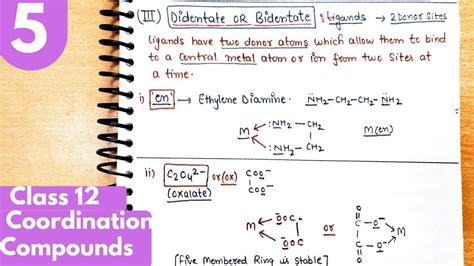 5
(III) Didentate OR Bidentate : Ligands → 2 Donor Sites
Ligands have two donor atoms which allow them to bind
to a central metal atom or ion from two sites at
a time.
i) 'en' → Ethylene Diamine. N̈H₂-CH₂-CH₂-N̈H₂
:NH₂-CH₂
M M(en)
:NH₂-CH₂
ii) C₂O₄²⁻ or(ox) COO⁻
(oxalate) COO⁻
M OOC or O C-O⁻ M
OOC O C-O⁻
[Five Membered Ring is stable]
Class 12
Coordination
Compounds